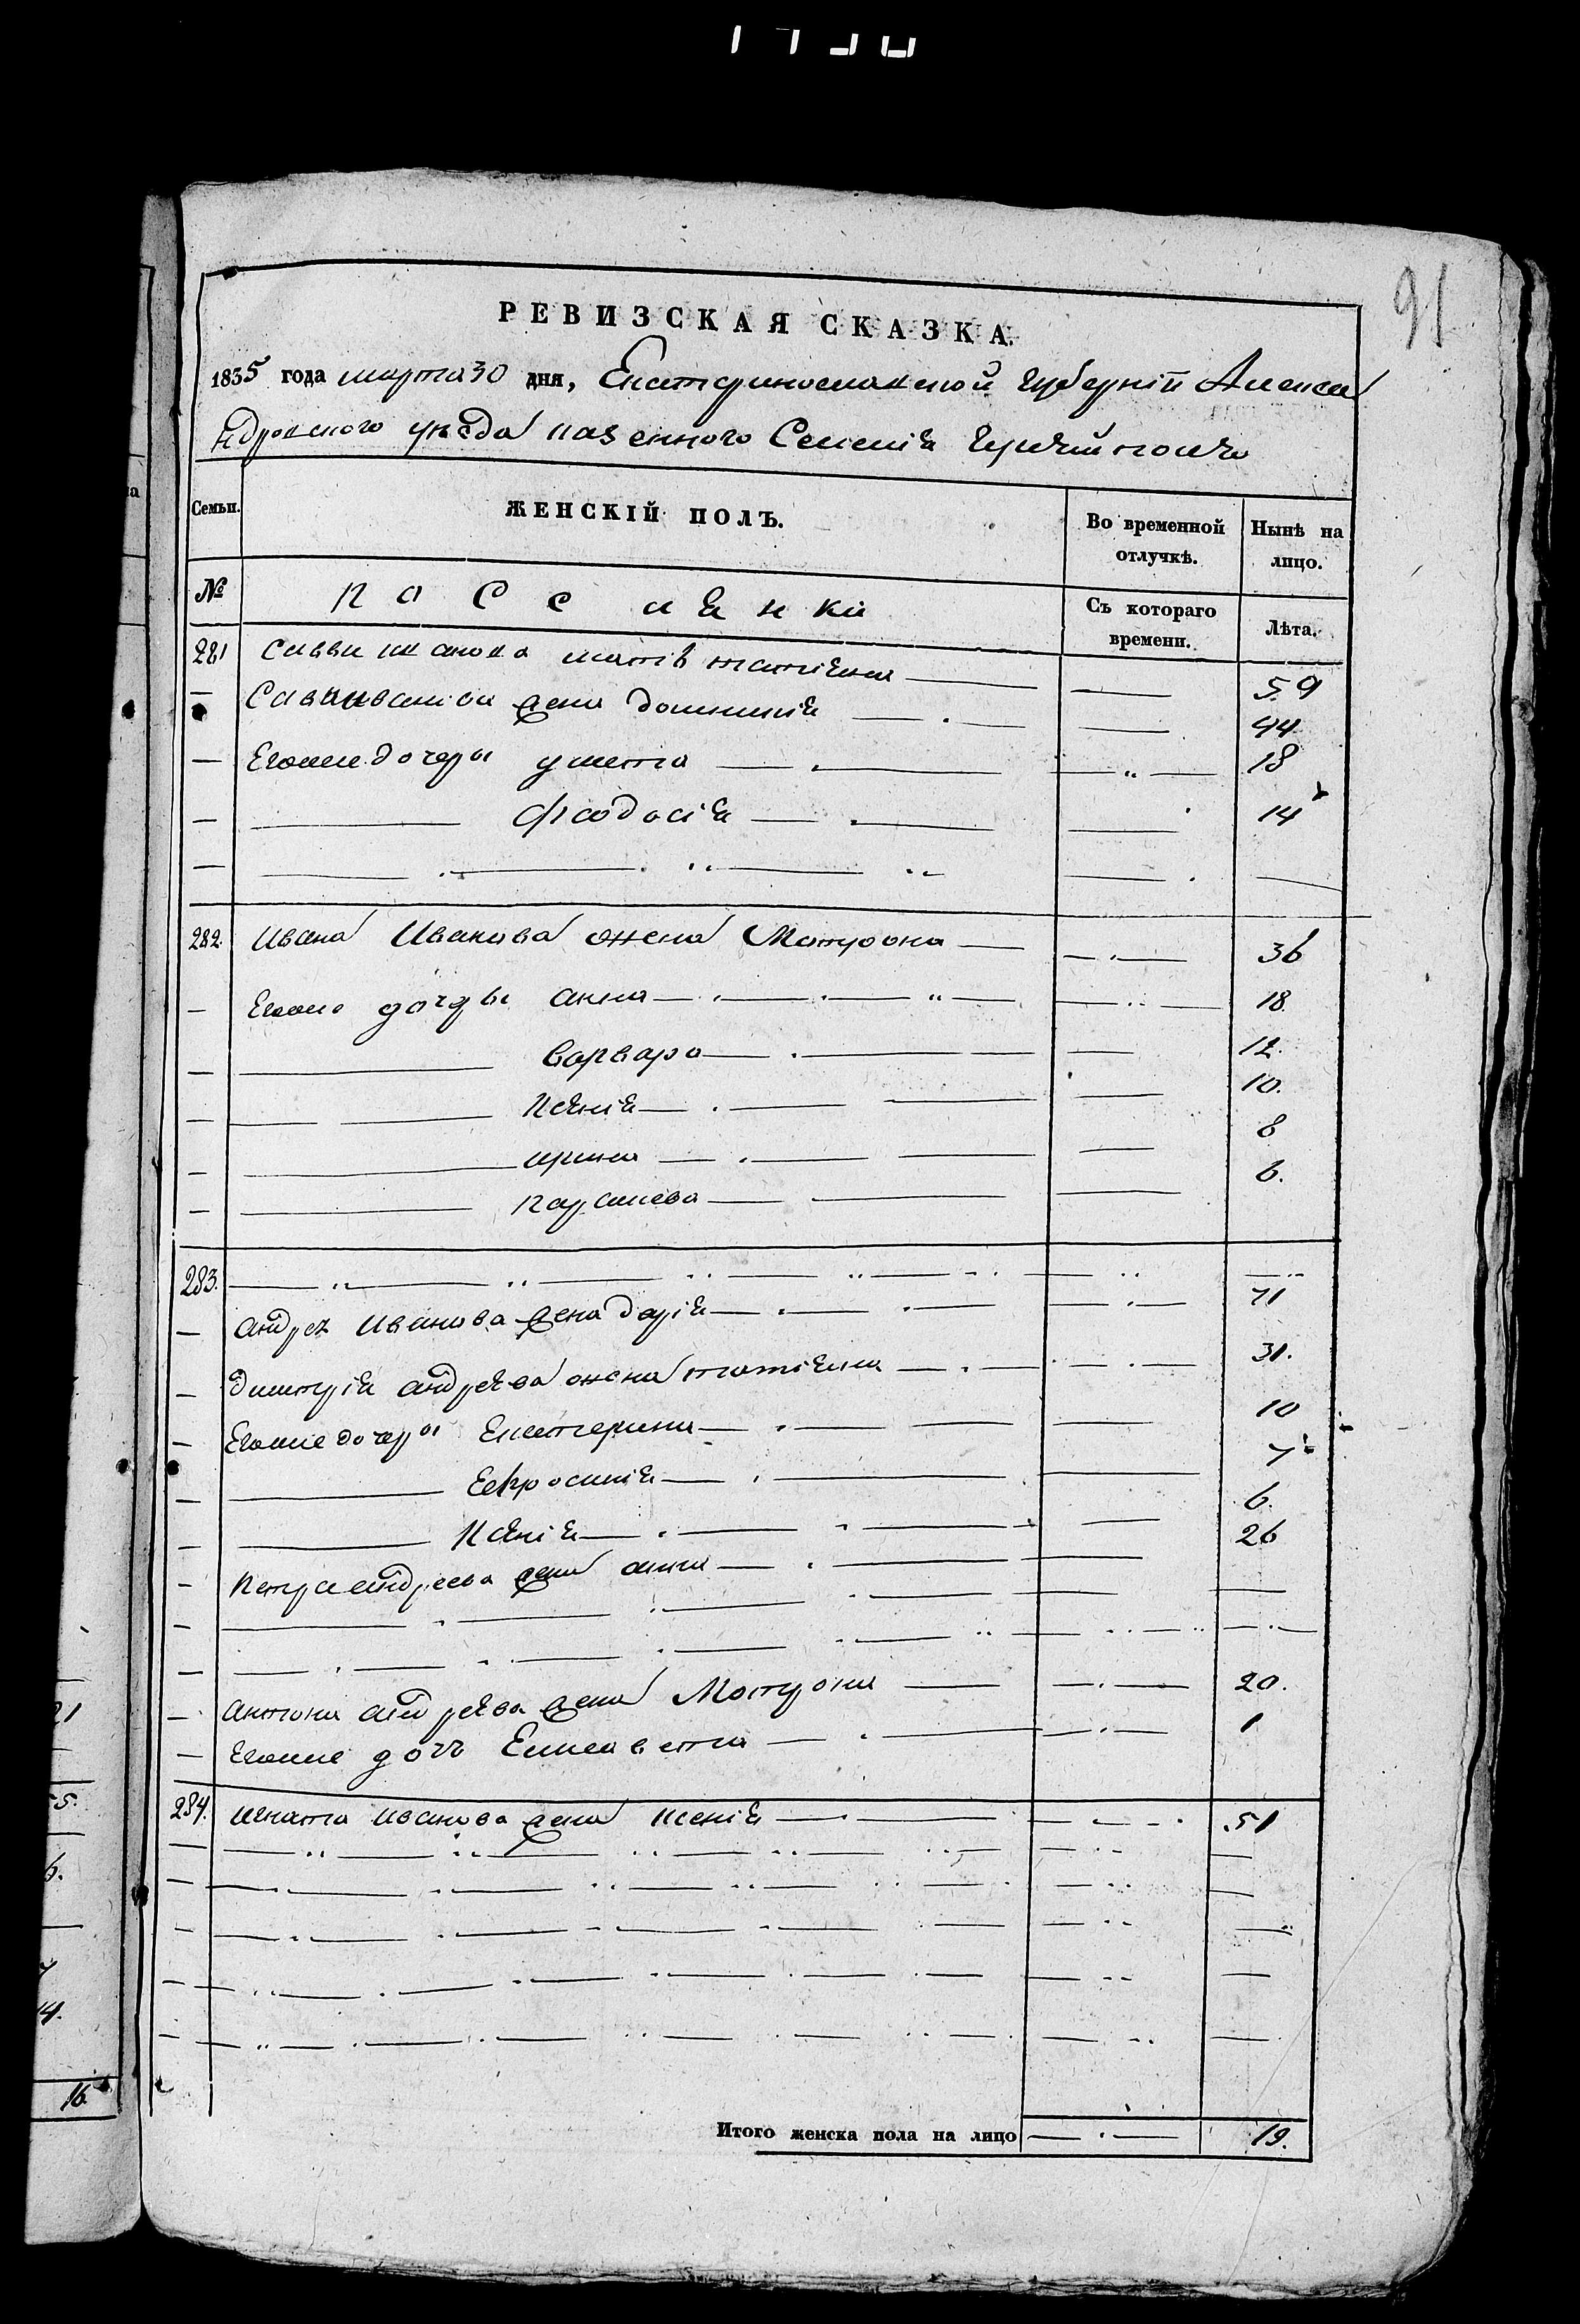 91
РЕВИЗСКАЯ СКАЗКА.
1835 года марта 30 дня, Екатеринославской губерніи Алексан
ндровского уѣзда казенного Селенія
Семьи.
ЖЕНСКІЙ ПОЛЪ.
Во временной отлучкѣ.
Нынѣ на лицо.
№
Поселянки
Съ котораго времени.
Лѣта.
281 Саввы Иванова мать татіяна 59
Саввы иванова жена домникія 44
Егоже дочеры 18
феодосія 14
282. Ивана Иванова жена Матрона 36
Егоже дочеры анна 18.
варвара 12.
Ксенія 10.
ирина 8
параскева 6.
283.
андрея иванова жена дарія 71
дмитрія андреева жена татіяна 31.
Егоже дочеры Екатерина 10
Ефросинія 7
Ксенія 6.
Петра андреева жена анна 26
антона андреева жена Матрона 20.
Егоже дочь Елисавета 1
284. игната иванова жена ксенія 51
Итого женска пола на лицо 19.
16